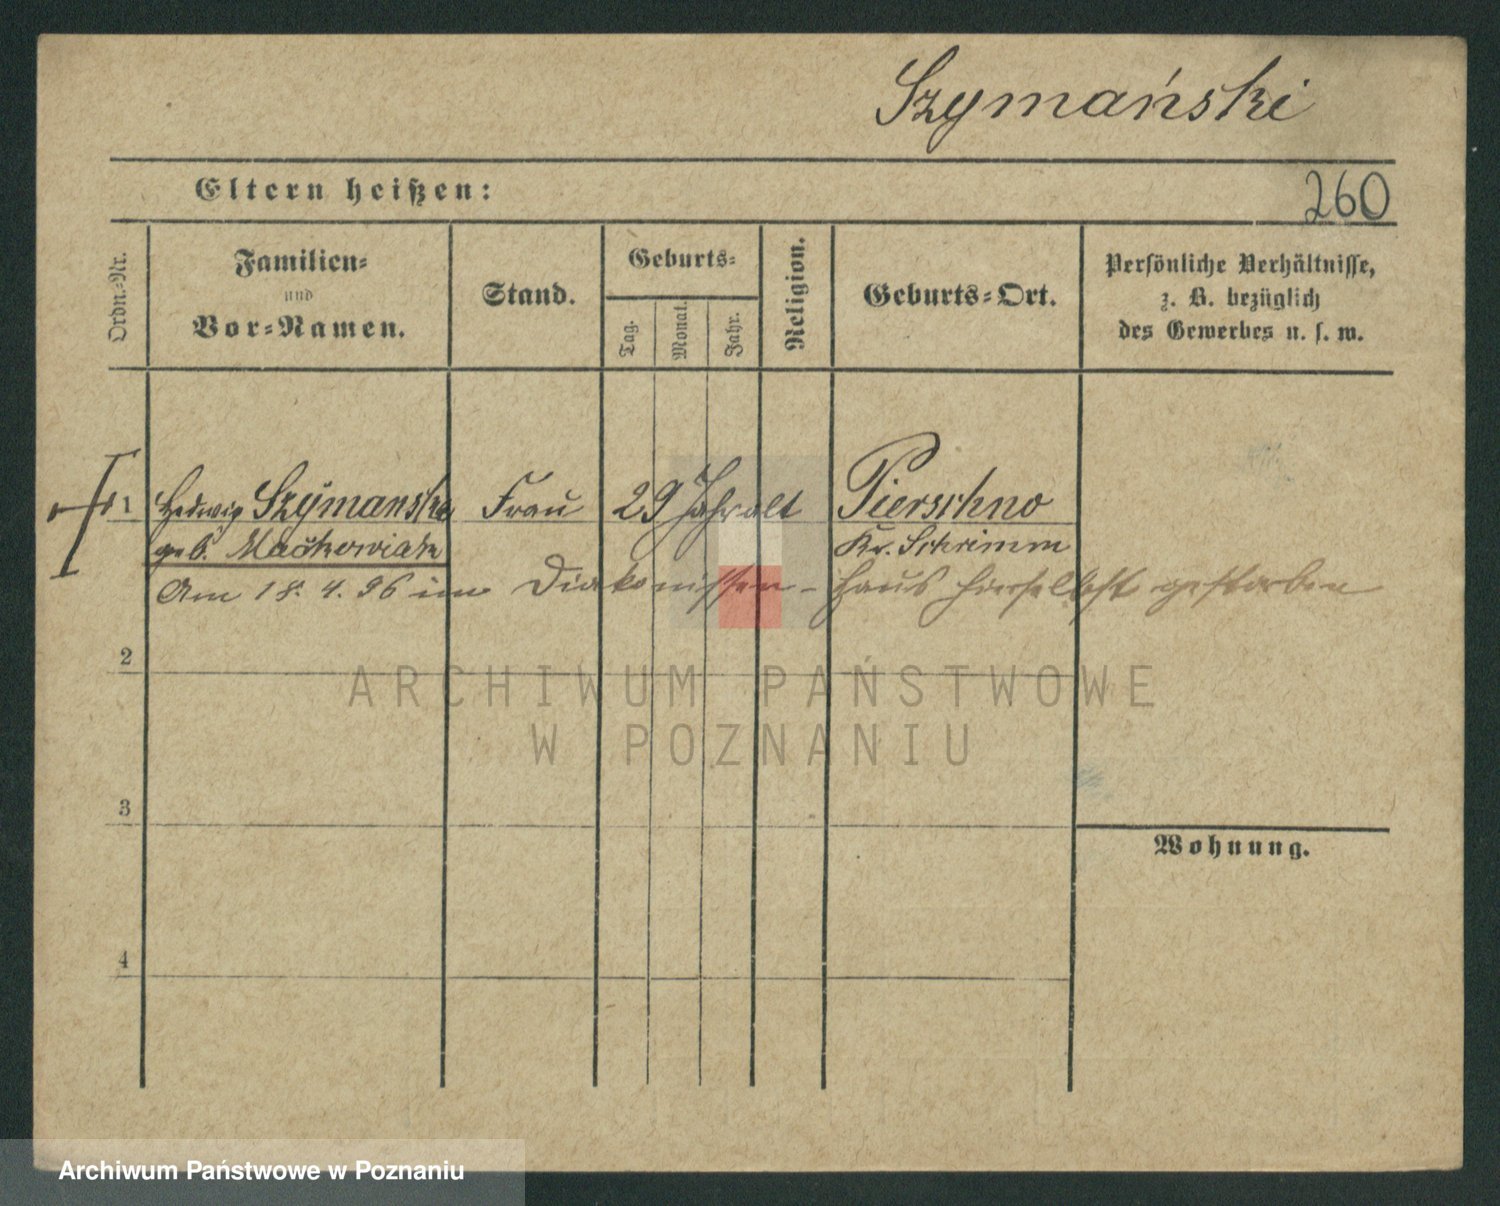 Szymański
Eltern heißen:
260
Ordn.-Nr.
Familien-
und
Vor-Namen.
Stand.
Geburts-
Tag.
Monat.
Jahr.
Religion.
Geburts-Ort.
Persönliche Verhältnisse,
z. B. bezüglich
des Gewerbes u. s. w.
1 Hedwig Szymanska Frau 29 Jahr alt Pierschno
geb. Mackowiak Kr. Schrimm
Am 18. 4. 96 im Diakonissen-Haus hierselbst gestorben
2
ARCHIWUM PAŃSTWOWE
W POZNANIU
3
Wohnung.
4
Archiwum Państwowe w Poznaniu